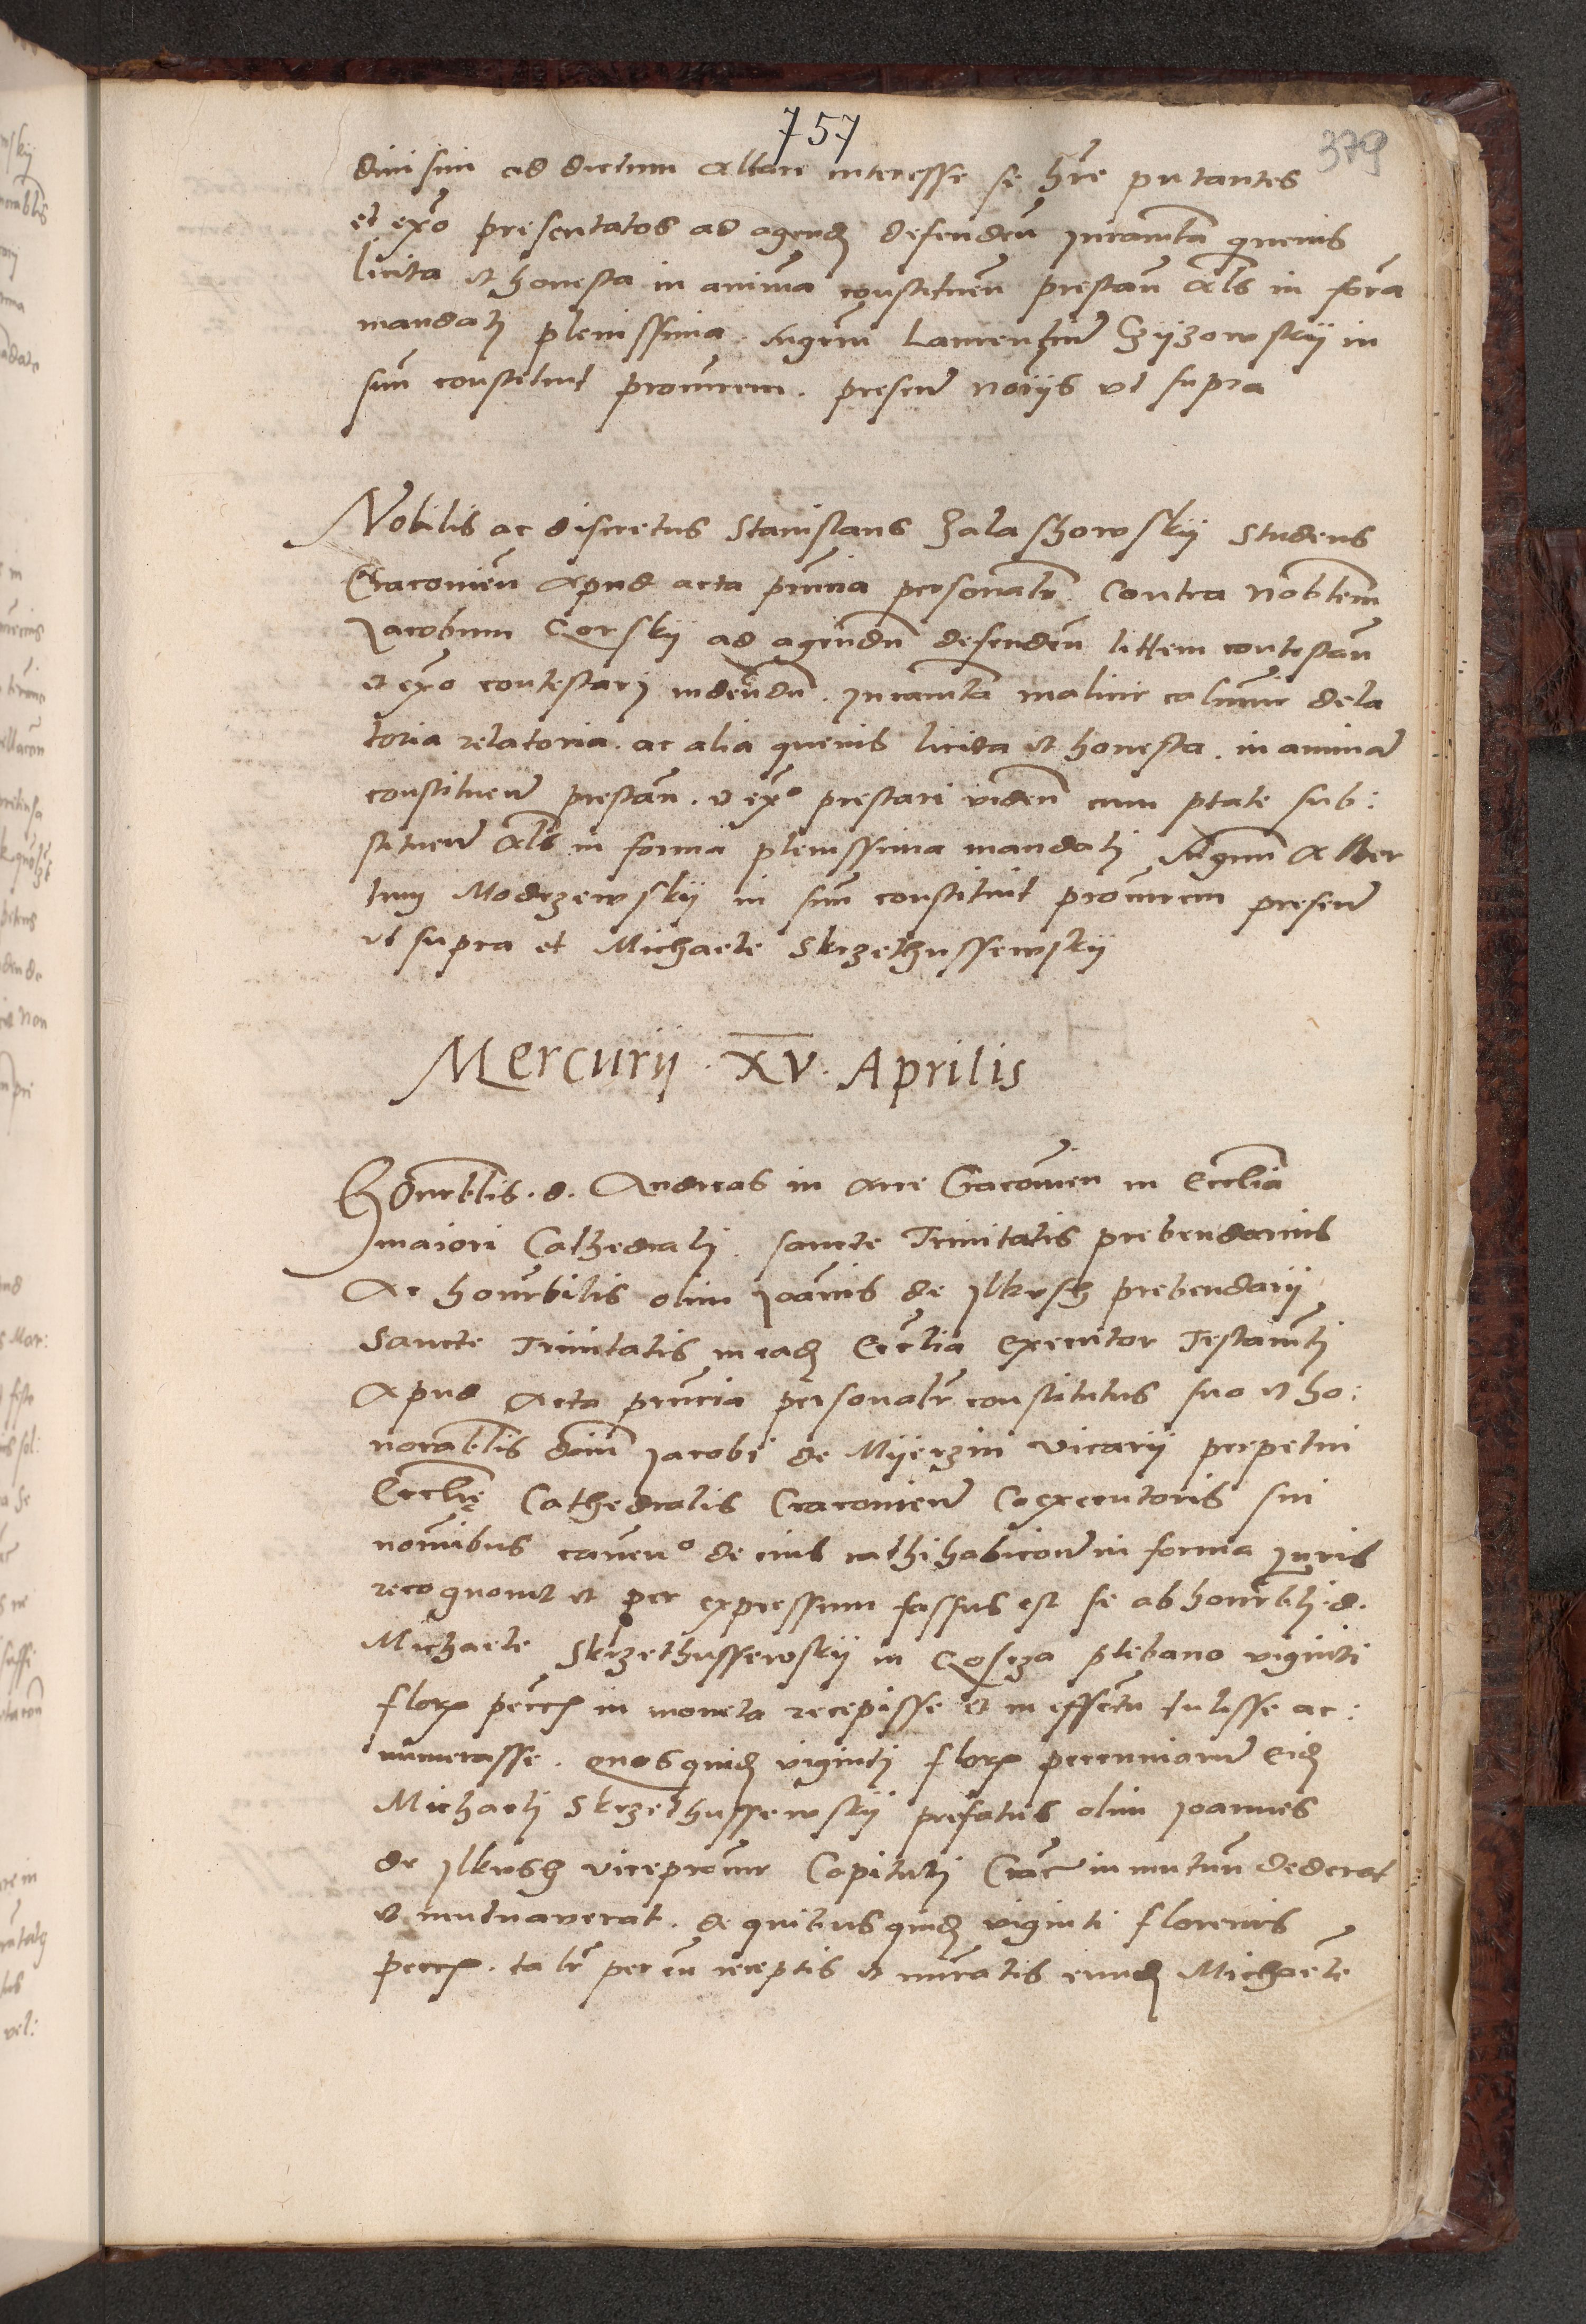 757
379
divisim ad dictum Altare interesse se hre putantes
et exo presentatos ad agend defenden Juramta quevis
licita et honesta in animá constituen prestan Als in forá
mandati plenissima. Mgrm Laurentium Czyzowskij in
suu constituit procurem. presen noriis ut supra
Nobilis ac discretus Stanislaus Zalashowskij Studens
Cracovien Apud acta prncia personalr. Contra Nobilem
Jacobum Gorskij ad agendu defenden littem contestan
et exo contestari videndu. Juramta malicie calumnie dela
toria relatoria. ac alia quevis licita et honesta. in animā
constituen prestan. et exo prestari viden cum ptate sub:
stituen Als in forma plenissima mandati Mgrum Alber
tum Modrzewskij in suu constituit procurem presen
ut supra et Michaele Skrzethussewskij
Mercurij. XV. Aprilis
Honrablis. d. Andreas in Arce Cracovien in Ecclia
maiori Cathedrali. sancte Trinitatis prebendarius
Ac honrabilis olim Joannis de Jlkusch prebendarij
Sancte Trinitatis in ead Ecclia Executor Testamti
Apud Acta prncia personalr constitutus suo et ho:
norablis dnim Jacobi de Mijerzin vicarij perpetui
Ecclię Cathedralis Cracovien Coexecutoris sui
nominibus caven° de eius rathihabicone in forma Juris
recognovit et per expressum fassus est se ab honrabli. d.
Michaele Skrzethussewskij in plebano viginti
flor pecc in moneta recepisse et in effectu tulisse ac:
numerasse. quos quid viginti flor pecuniarum Eid
Michaeli Skrzethussewskij prefatus olim Joannes
de Jlkusch viceprocur Capituli Crac in mutuum dederat
et mutuaverat. de quibus quid viginti florenis
pecc. talr per eu receptis et numratis eund Michaele